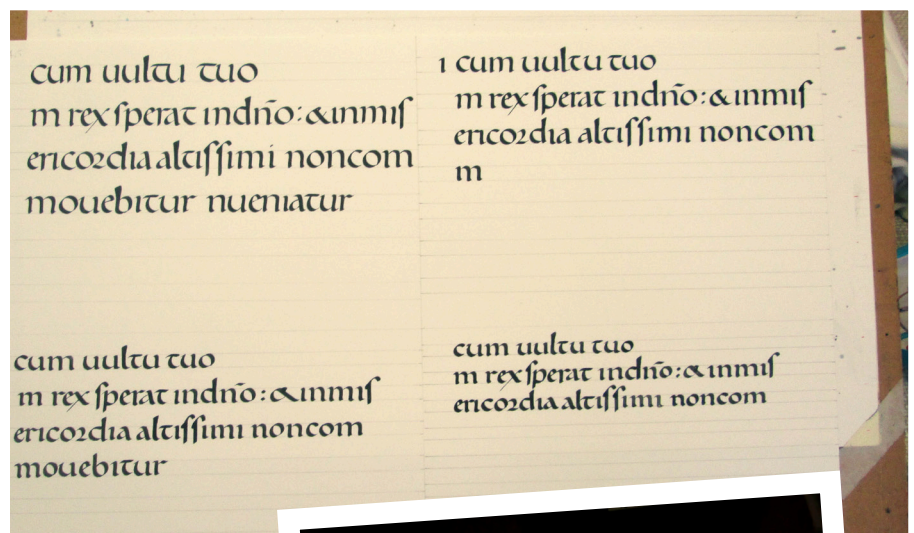 cum uultu tuo
m rex sperat indño:&inmis
ericordia altissimi noncom
mouebitur nueniatur
1 cum uultu tuo
m rex sperat indño:&inmis
ericordia altissimi noncom
m
cum uultu tuo
m rex sperat indño:&inmis
ericordia altissimi noncom
mouebitur
cum uultu tuo
m rex sperat indño:&inmis
ericordia altissimi noncom